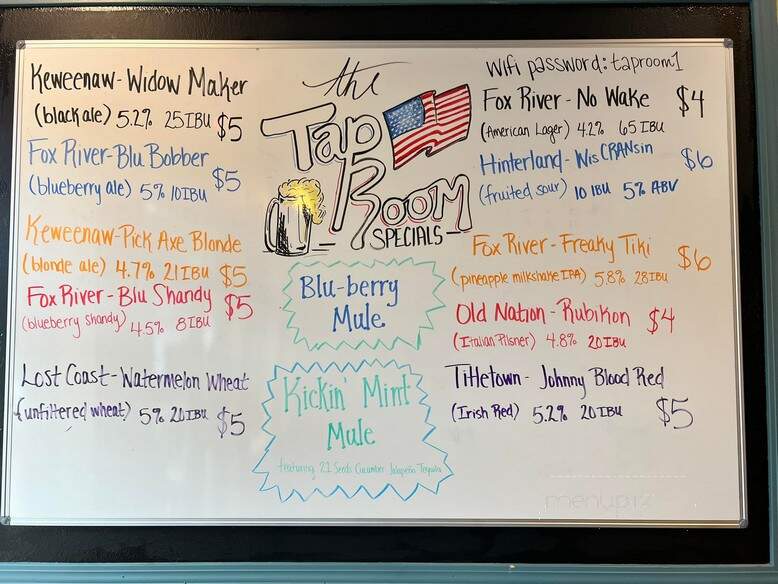 Keweenaw-Widow Maker
(black ale) 5.2% 25IBU $5
Fox River-Blu Bobber
(blueberry ale) 5% 10IBU $5
Keweenaw-Pick Axe Blonde
(blonde ale) 4.7% 21IBU $5
Fox River-Blu Shandy
(blueberry shandy) 4.5% 8IBU $5
Lost Coast-Watermelon Wheat
(unfiltered wheat) 5% 20IBU $5
the
Tap
Room
SPECIALS
Blu-berry
Mule
Kickin' Mint
Mule
featuring 21 Seeds Cucumber Jalapeño Tequila
Wifi password: taproom1
Fox River-No Wake $4
(American Lager) 4.2% 65IBU
Hinterland-WisCRANsin $6
(fruited sour) 10IBU 5% ABV
Fox River-Freaky Tiki $6
(pineapple milkshake IPA) 5.8% 28IBU
Old Nation-Rubikon $4
(Italian Pilsner) 4.8% 20IBU
Titletown-Johnny Blood Red
(Irish Red) 5.2% 20IBU $5